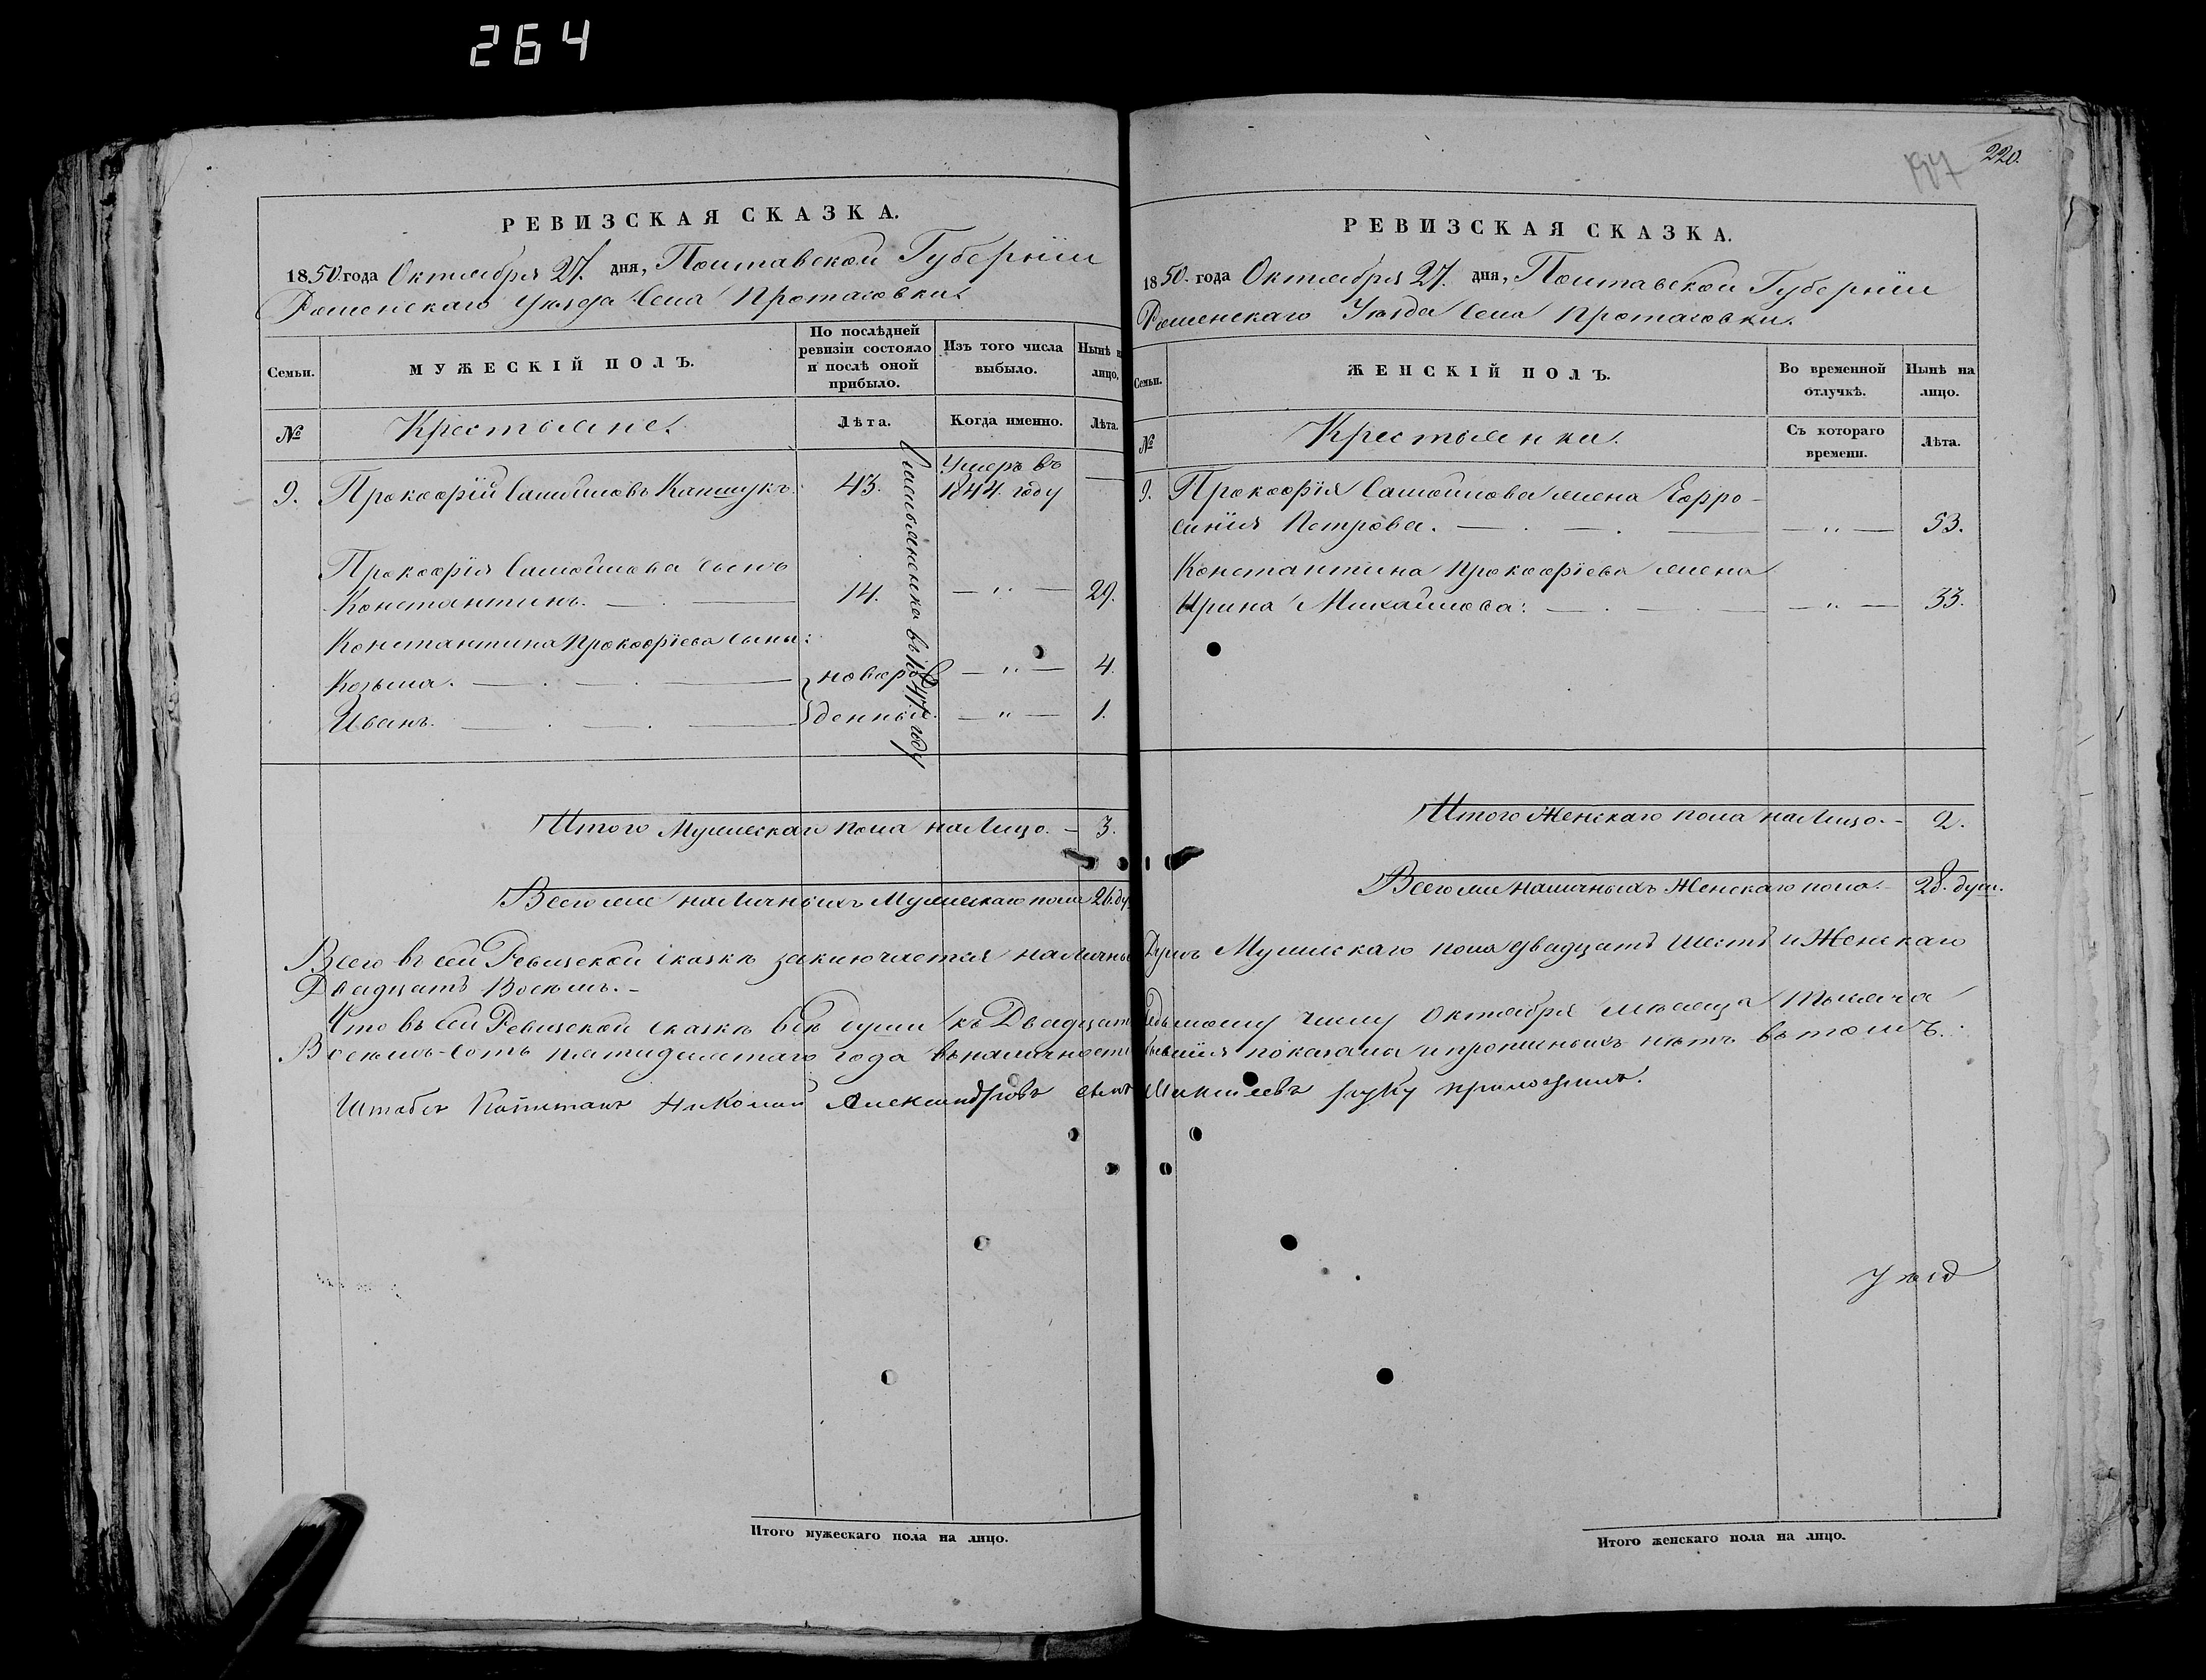 264
РЕВИЗСКАЯ СКАЗКА.
1850. года Октября 27. дня, Полтавской Губерніи
Роменскаго Уѣзда Села Протасовки.
Семьи.
МУЖЕСКІЙ ПОЛЪ.
По послѣдней ревизіи состояло и послѣ оной прибыло.
Изъ того числа выбыло.
Нынѣ н лицо.
№
Крестьяне.
Лѣта.
Когда именно.
Лѣта.
9. Прокофій Самойловъ 43. Умеръ въ 1844. году —
Прокофія Самойлова сынъ
Константинъ. 14. — „ — 29.
Константина Прокофіева сыны:
Козьма. новорож — „ — 4.
Иванъ. денный. — „ — 1.
въ 1847. году
Итого Мужескаго пола на Лицо. – 3.
Всего же на Личныхъ Мужескаго пола 26. ду
197
220.
РЕВИЗСКАЯ СКАЗКА.
1850. года Октября 27. дня, Полтавской Губерніи
Роменскаго Уѣзда Села Протасовки.
Семьи.
ЖЕНСКІЙ ПОЛЪ.
Во временной отлучкѣ.
Нынѣ на лицо.
№
Крестьянки.
Съ котораго времени.
Лѣта.
9. Прокофія Самойлова жена Ефро-
синія Петрова. — „ — 53.
Константина Прокофіева жена
Ирина Михайлова: — „ — 33.
Итого Женскаго пола на Лицо. – 2.
Всего же наличныхъ Женскаго пола. – 28. душ.
Всего въ сей Ревизской сказкѣ заключается наличны Душъ Мужескаго пола двадцать шесть и Женскаго
Двадцать Восемь. –
Что въ сей Ревизской сказкѣ всѣ души къ Двадцат седьмому числу Октября мѣсяца Тысяча
Восемь-сотъ пятидесятаго года въ наличности бывшія показаны и прописныхъ нѣтъ въ томъ.
Штабсъ Капитанъ Николай Александровъ сынъ руку приложилъ.
Уѣзд
Итого мужескаго пола на лицо.
Итого женскаго пола на лицо.